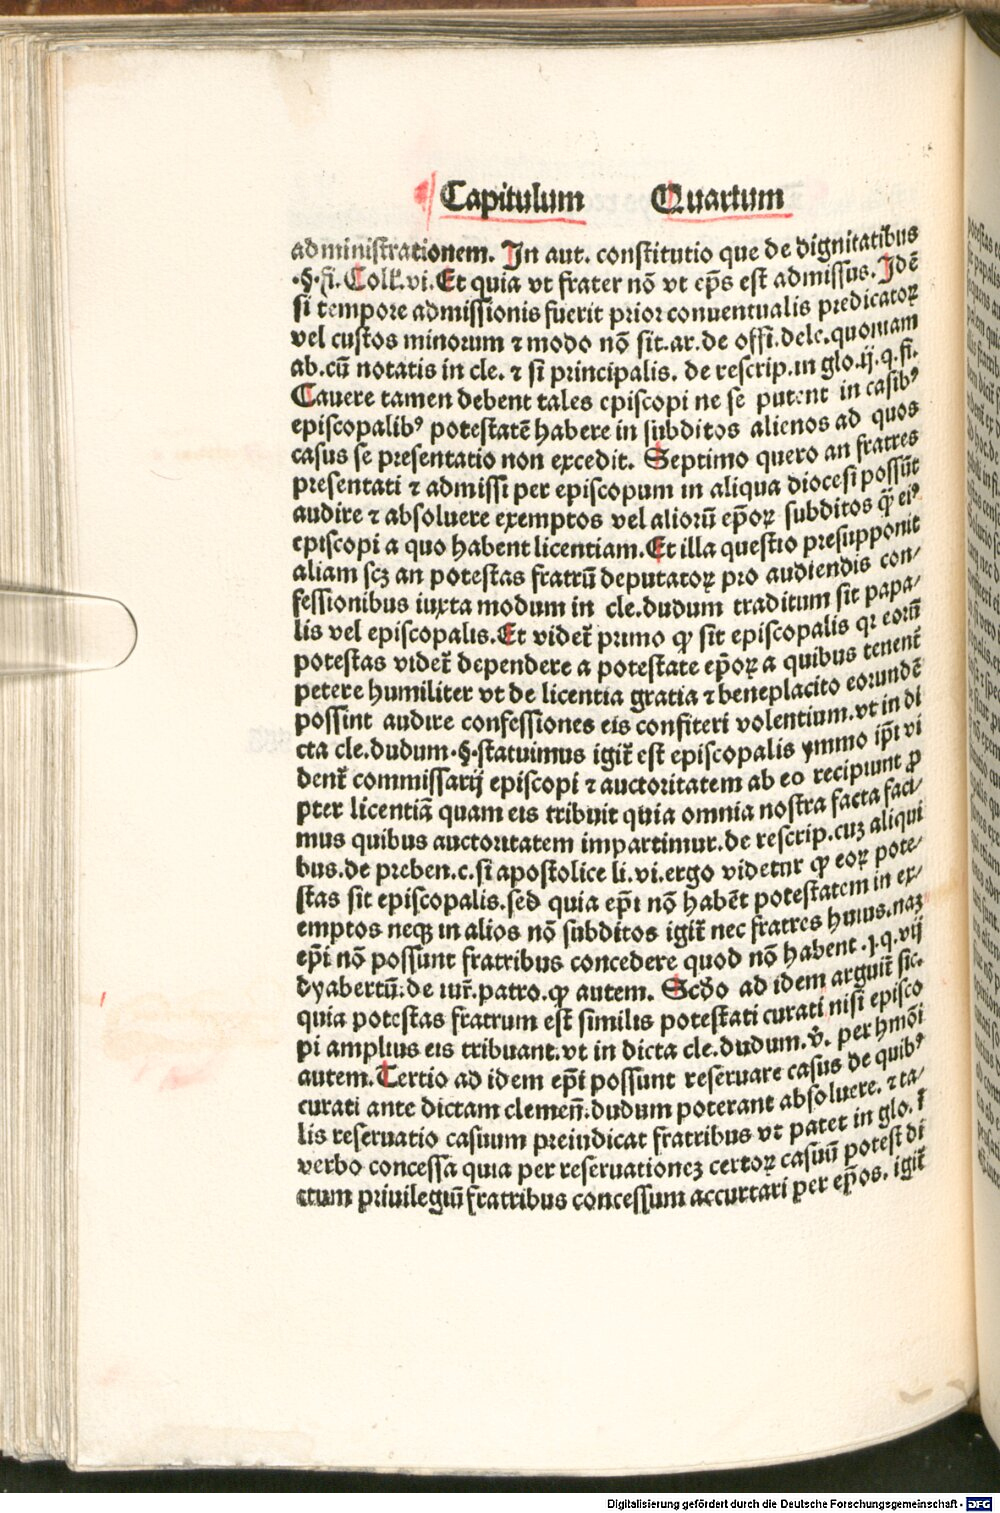 Capitulum Quartum
administrationem. In aut. constitutio que de dignitatibus
.§.fi. Coll.vi. Et quia vt frater nō vt ep̄s est admissus. Idē
si tempore admissionis fuerit prior conuentualis predicatoꝝ
vel custos minorum ⁊ modo nō sit.ar.de offi.dele.quoniam
ab.cū notatis in cle. ⁊ si principalis. de rescrip.in glo.ij.q.fi.
Cauere tamen debent tales episcopi ne se putent in casibꝰ
episcopalibꝰ potestatē habere in subditos alienos ad quos
casus se presentatio non excedit. Septimo quero an fratres
presentati ⁊ admissi per episcopum in aliqua diocesi possūt
audire ⁊ absoluere exemptos vel aliorū ep̄oꝝ subditos q̄ eiꝰ
episcopi a quo habent licentiam. Et illa questio presupponit
aliam scꝫ an potestas fratrū deputatoꝝ pro audiendis con-
fessionibus iuxta modum in cle.dudum traditum sit papa-
lis vel episcopalis. Et videt̄ primo ꝙ sit episcopalis qꝛ eorū
potestas videt̄ dependere a potestate ep̄oꝝ a quibus tenent̄
petere humiliter vt de licentia gratia ⁊ beneplacito eorundē
possint audire confessiones eis confiteri volentium.vt in di
cta cle.dudum.§.statuimus igit̄ est episcopalis ymmo ip̄i vi
dent̄ commissarij episcopi ⁊ auctoritatem ab eo recipiunt ꝓ
pter licentiā quam eis tribuit quia omnia nostra facta faci-
mus quibus auctoritatem impartimur.de rescrip.cuꝫ aliqui
bus.de preben.c.si apostolice li.vi.ergo videtur ꝙ eoꝝ pote-
stas sit episcopalis.sed quia ep̄i nō habēt potestatem in ex-
emptos neqꝫ in alios nō subditos igit̄ nec fratres huius.naꝫ
ep̄i nō possunt fratribus concedere quod nō habent.j.q.vij
dyabertū.de iur̄.patro.ꝙ autem. Scd̄o ad idem arguit̄ sic.
quia potestas fratrum est similis potestati curati nisi episco
pi amplius eis tribuant.vt in dicta cle.dudum.v̄. per hmōi
autem. Tertio ad idem ep̄i possunt reseruare casus de quibꝰ
curati ante dictam clemen̄.dudum poterant absoluere. ⁊ ta-
lis reseruatio casuum preiudicat fratribus vt patet in glo. ī
verbo concessa quia per reseruationeꝫ certoꝝ casuū potest di
ctum priuilegiū fratribus concessum accurtari per ep̄os. igit̄
Digitalisierung gefördert durch die Deutsche Forschungsgemeinschaft - DFG